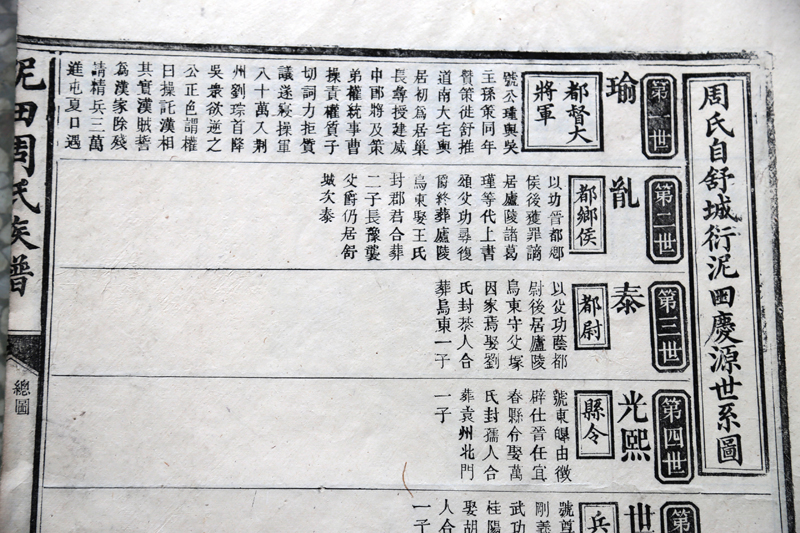 周氏自舒城衍泥田慶源世系圖
第一世
瑜
都督大
將軍
號公瑾與吳
主孫策同年
贊策徙舒推
道南大宅與
居初為居巢
長尋授建威
中郎將及策
弟權統事曹
操責權質子
切詞力拒質
議遂寢操軍
八十萬入荆
州劉琮首降
吳衆欲逆之
公正色謂權
曰操託漢相
其實漢賊誓
為漢家除殘
請精兵三萬
進屯夏口遇
第二世
胤
都鄉侯
以功晉都鄉
侯後獲罪謫
居廬陵諸葛
瑾等代上書
頌父功尋復
爵終葬廬陵
烏東娶王氏
封郡君合葬
二子長豫襲
父爵仍居舒
城次泰
第三世
泰
都尉
以父功蔭都
尉後居廬陵
烏東守父塚
因家焉娶劉
氏封恭人合
葬烏東一子
第四世
光熙
縣令
號東皥由徵
辟仕晉任宜
春縣令娶萬
氏封孺人合
葬袁州北門
一子
第
世
兵
號尊
剛義
武功
桂陽
娶胡
人合
一子
泥田周氏族譜
總圖